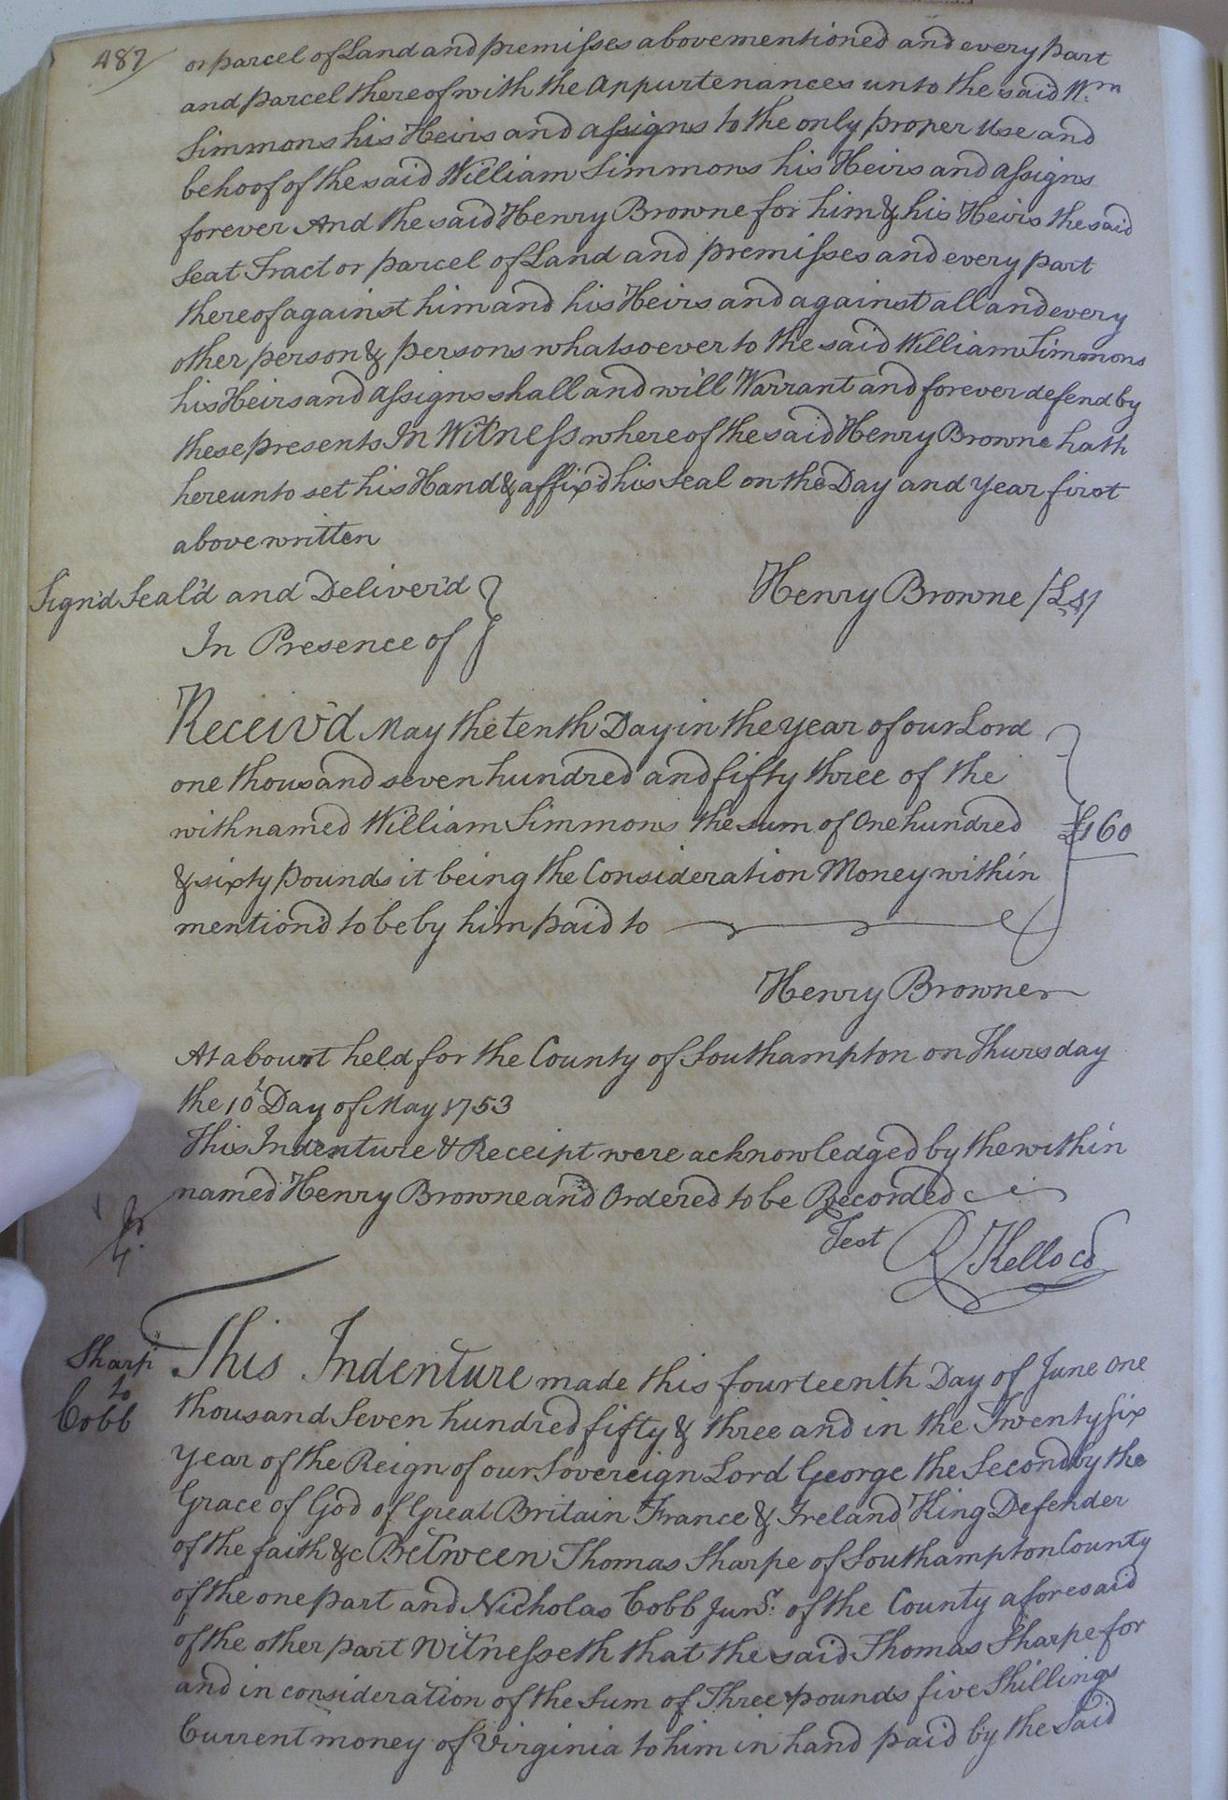 487
or parcel of Land and premisses abovementioned and every part
and parcel thereof with the Appurtenances unto the said Wm
Simmons his Heirs and assigns to the only proper Use and
behoof of the said William Simmons his Heirs and assigns
forever And the said Henry Browne for him & his Heirs the said
Seat Tract or parcel of Land and premisses and every part
thereof against him and his Heirs and against all and every
other person & persons whatsoever to the said William Simmons
his Heirs and assigns shall and will Warrant and forever defend by
these presents In Witness whereof the said Henry Browne hath
hereunto set his Hand & affix'd his Seal on the Day and Year first
above written
Sign'd Seal'd and Deliver'd
Henry Browne /LS/
In Presence of
Receiv'd May the tenth Day in the year of our Lord
one thousand seven hundred and fifty three of the
withnamed William Simmons the sum of One hundred
£160
& sixty pounds it being the Consideration Money within
mention'd to be by him paid to
Henry Browne
At a Court held for the County of Southampton on Thursday
the 10t Day of May 1753
This Indenture & Receipt were acknowledged by the within
named Henry Browne and Ordered to be Recorded
Test R Kello Cd
Sharp
to
Cobb
This Indenture made this fourteenth Day of June one
thousand Seven hundred fifty & three and in the Twenty six
Year of the Reign of our Sovereign Lord George the Second by the
Grace of God of Great Britain France & Ireland King Defender
of the faith &c Between Thomas Sharpe of Southampton County
of the one part and Nicholas Cobb Junr. of the County aforesaid
of the other part Witnesseth that the said Thomas Sharpe for
and in consideration of the Sum of Three pounds five Shillings
Current money of Virginia to him in hand paid by the Said